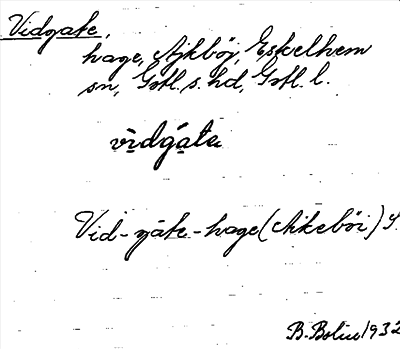 Vidgate,
hage, Ajkböj, Eskelhem
sn, Gotl. s. hd, Gotl. l.
vìdgáta
Vid-gate-hage (Aikeböi) S.
B. Bolin 1932